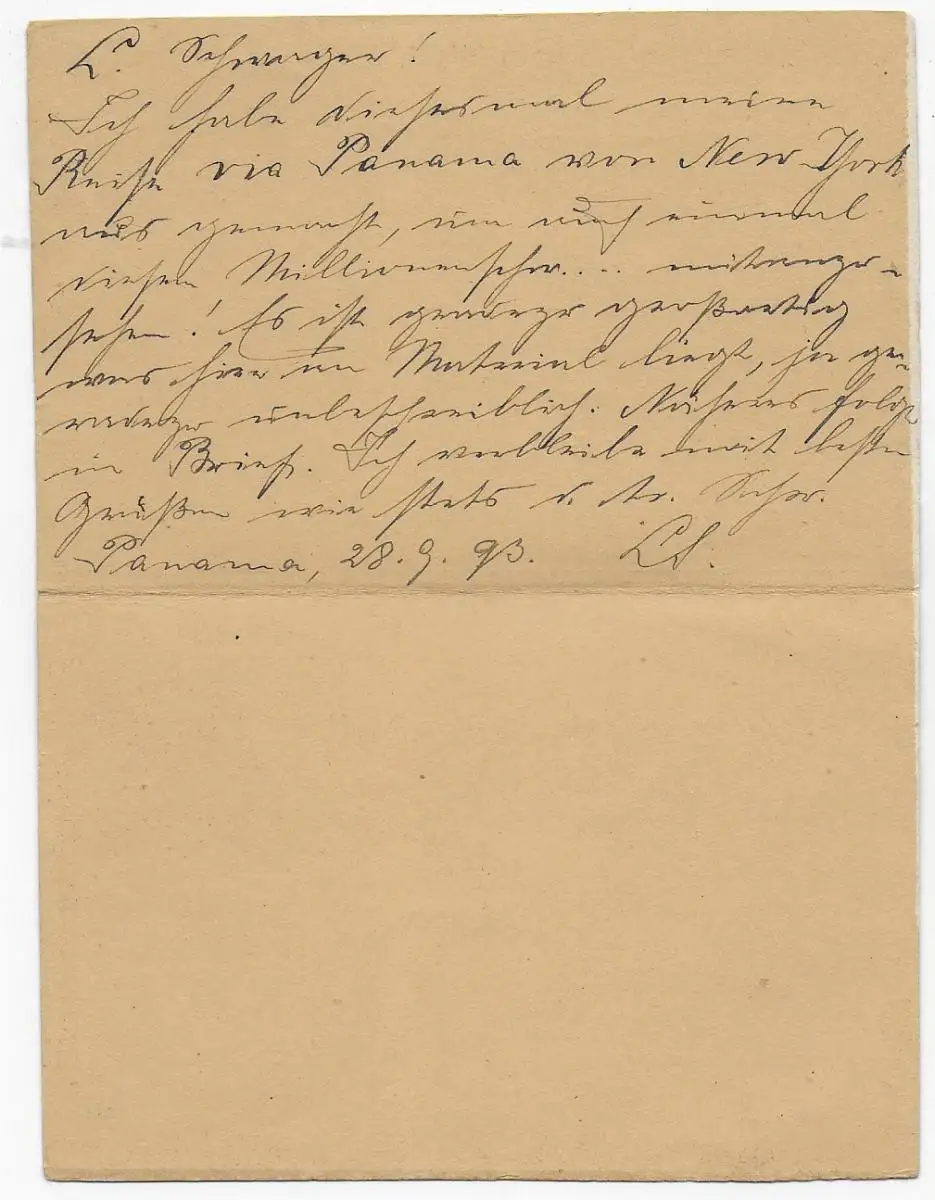 L. Schwager!
Ich habe diesesmal meine
Reise via Panama von New-York
aus gemacht, um auch einmal
diesen Millionenschw.... mitanzu-
sehen! Es ist gradezu großartig
was hier an Material liegt, ja ge-
radezu unbeschreiblich. Näheres folgt
in Brief. Ich verbleibe mit besten
Grüßen wie stets d. tr. Schw.
Panama, 28.9.93.